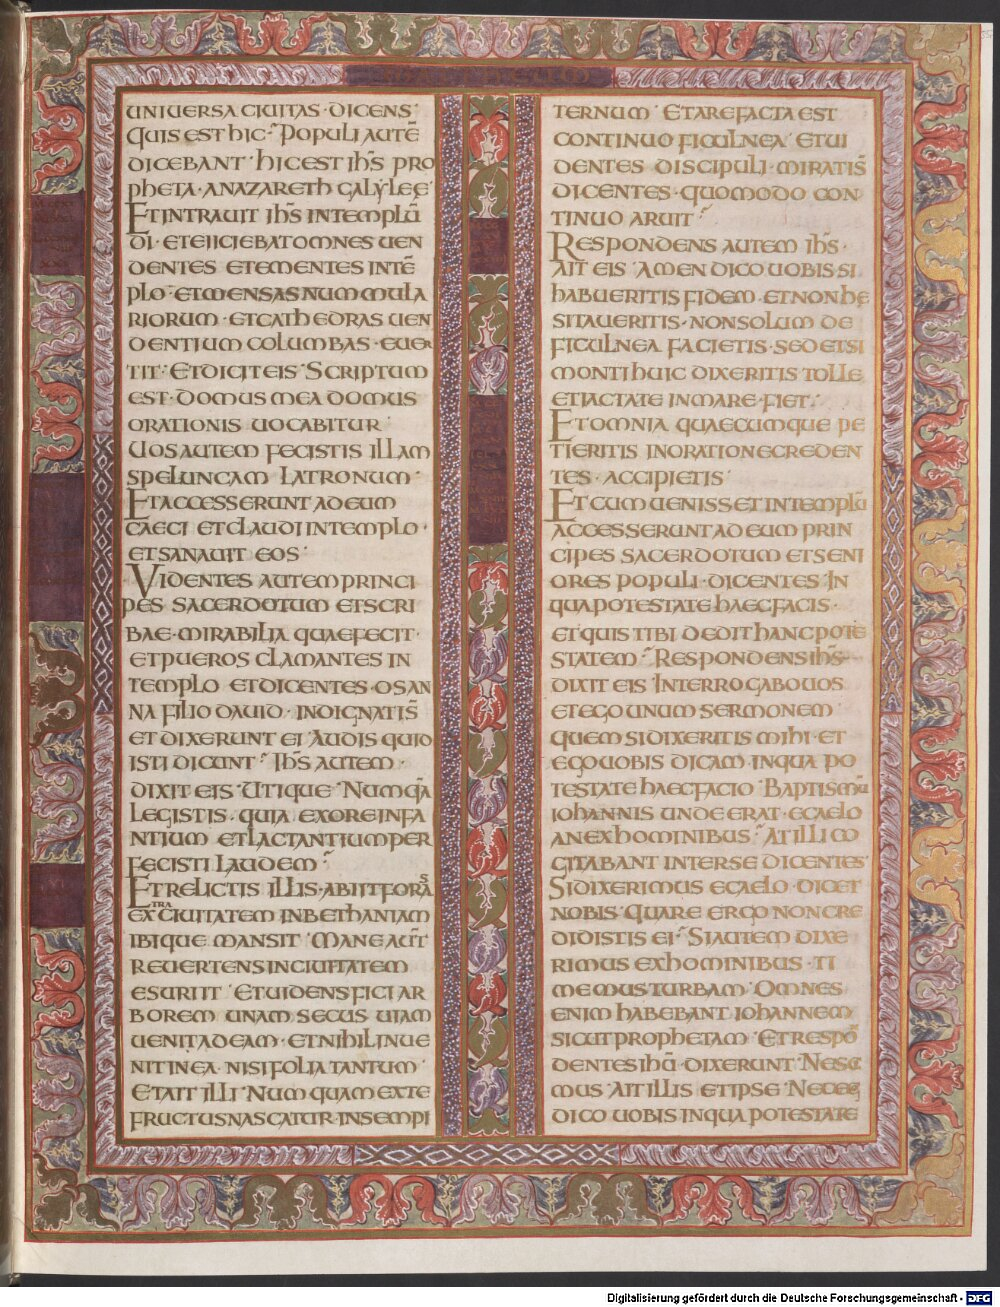 UNIUERSA CIUITAS · DICENS
QUIS EST HIC · POPULI AUTĒ
DICEBANT · HIC EST IHS̄ PRO
PHETA · A NAZARETH GALYLEĘ
ET INTRAUIT IHS̄ IN TEMPLŪ
DI · ET EIICIEBAT OMNES UEN
DENTES ET EMENTES IN TĒ
PLO · ET MENSAS NUMMULA
RIORUM · ET CATHEDRAS UEN
DENTIUM COLUMBAS · EUER
TIT · ET DICIT EIS · SCRIPTUM
EST · DOMUS MEA DOMUS
ORATIONIS UOCABITUR
UOS AUTEM FECISTIS ILLAM
SPELUNCAM LATRONUM ·
ET ACCESSERUNT AD EUM
CAECI ET CLAUDI IN TEMPLO ·
ET SANAUIT EOS ·
VIDENTES AUTEM PRINCI
PES SACERDOTUM ET SCRI
BAE · MIRABILIA QUAE FECIT ·
ET PUEROS CLAMANTES IN
TEMPLO ET DICENTES · OSAN
NA FILIO DAUID · INDIGNATI S̄
ET DIXERUNT EI · AUDIS QUID
ISTI DICUNT · IHS̄ AUTEM ·
DIXIT EIS · UTIQUE · NUMQ̄A
LEGISTIS · QUIA EX ORE INFA
NTIUM ET LACTANTIUM PER
FECISTI LAUDEM ·
ET RELICTIS ILLIS · ABIIT FORAS
EXTRA CIUITATEM IN BETHANIAM
IBIQUE MANSIT · MANE AUT̄
REUERTENS IN CIUITATEM
ESURIIT · ET UIDENS FICI AR
BOREM UNAM SECUS UIAM
UENIT AD EAM · ET NIHIL INUE
NIT IN EA · NISI FOLIA TANTUM ·
ET AIT ILLI · NUMQUAM EX TE
FRUCTUS NASCATUR · IN SEMPI
TERNUM · ET AREFACTA EST
CONTINUO FICULNEA · ET UI
DENTES DISCIPULI · MIRATI S̄
DICENTES · QUOMODO CON
TINUO ARUIT ·
RESPONDENS AUTEM IHS̄ ·
AIT EIS · AMEN DICO UOBIS · SI
HABUERITIS FIDEM · ET NON HE
SITAUERITIS · NON SOLUM DE
FICULNEA FACIETIS · SED ET SI
MONTI HUIC DIXERITIS TOLLE
ET IACTATE IN MARE · FIET ·
ET OMNIA QUAECUMQUE PE
TIERITIS IN ORATIONE CREDEN
TES · ACCIPIETIS ·
ET CUM UENISSET IN TEMPLŪ
ACCESSERUNT AD EUM PRIN
CIPES SACERDOTUM ET SENI
ORES POPULI · DICENTES · IN
QUA POTESTATE HAEC FACIS ·
ET QUIS TIBI DEDIT HANC POTE
STATEM · RESPONDENS IHS̄
DIXIT EIS · INTERROGABO UOS
ET EGO UNUM SERMONEM
QUEM SI DIXERITIS MIHI · ET
EGO UOBIS DICAM · IN QUA PO
TESTATE HAEC FACIO · BAPTISMŪ
IOHANNIS UNDE ERAT · E CAELO
AN EX HOMINIBUS · AT ILLI CO
GITABANT INTER SE DICENTES ·
SI DIXERIMUS E CAELO · DICET
NOBIS · QUARE ERGO NON CRE
DIDISTIS EI · SI AUTEM DIXE
RIMUS EX HOMINIBUS · TI
MEMUS TURBAM · OMNES
ENIM HABEBANT IOHANNEM
SICUT PROPHETAM · ET RESPŌ
DENTES IHŪ · DIXERUNT · NESCI
MUS · AIT ILLIS ET IPSE · NEC EG
DICO UOBIS IN QUA POTESTATE
Digitalisierung gefördert durch die Deutsche Forschungsgemeinschaft - DFG